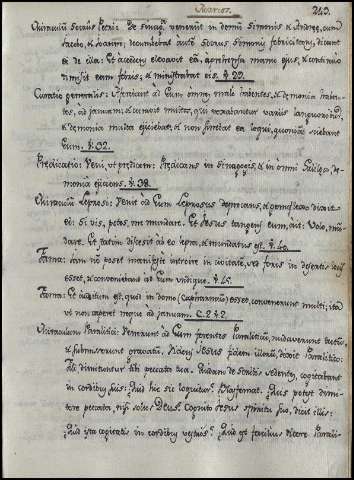 243.
Miraculum Socrus Petri: De Sinag. venerunt in domū Simonis, & Andreę, cum
Jacobo, & Joanni; decumbebat autē Socrus Simonis febricitans; dicunt
ei de illa: Et accedens elevavit eā, aprehensa manu ejus, & continuo
dimisit eam febris; & ministrabat eis. ℣. 29.
Curatio generalis: ad Eum omnes male habentes, & demonia haben-
tes, ad januam; & curavit multos, qui vexabantur variis languoribus,
& demonia multa ejiciebat, & non sinebat ea loqui, quoniā sciebant
Eum. ℣. 32.
Predicatio: Veni, ut predicem; Predicans in Sinagogis, & in omni Galilęa, de-
monia ejiciens. ℣. 38.
Miraculū Leprosi: Venit ad Eum Leprosus deprecans, & genuflexo dixit
ei: Si vis, potes, me mundare. Et Jesus tangens eum, ait: Volo, mū-
dare. Et statim discesit ab eo lepra, & mundatus est. ℣. 40.
Fama: Iam nō poset manifeste introire in civitatē, sed foris in desertis locis
esset, & conveniebant ad Eum undique. ℣. 45.
Fama: Et auditum est, quod in domo (Capharnaum) esset, convenerunt multi; ita
ut non caperet neque ad januam. C. 2. ℣. 2.
Miraculum Paralitici: Venerunt ad Eum ferentes Paraliticū, nudaverunt tectū,
& submiserunt gravatū. Videns Jesus fidem illorū, dixit Paralitico:
Fili dimittuntur tibi peccata tua. Quidam de Scribis sedentes, cogitabant
in cordibus suis: Quid hic sic loquitur? Blasfemat. Quis potest dimi-
tere peccata, nisi solus Deus? Cognito Jesus spiritu suo, dicit illis:
Quid ista cogitatis in cordibus vestris? Quid est facilius dicere Parali-